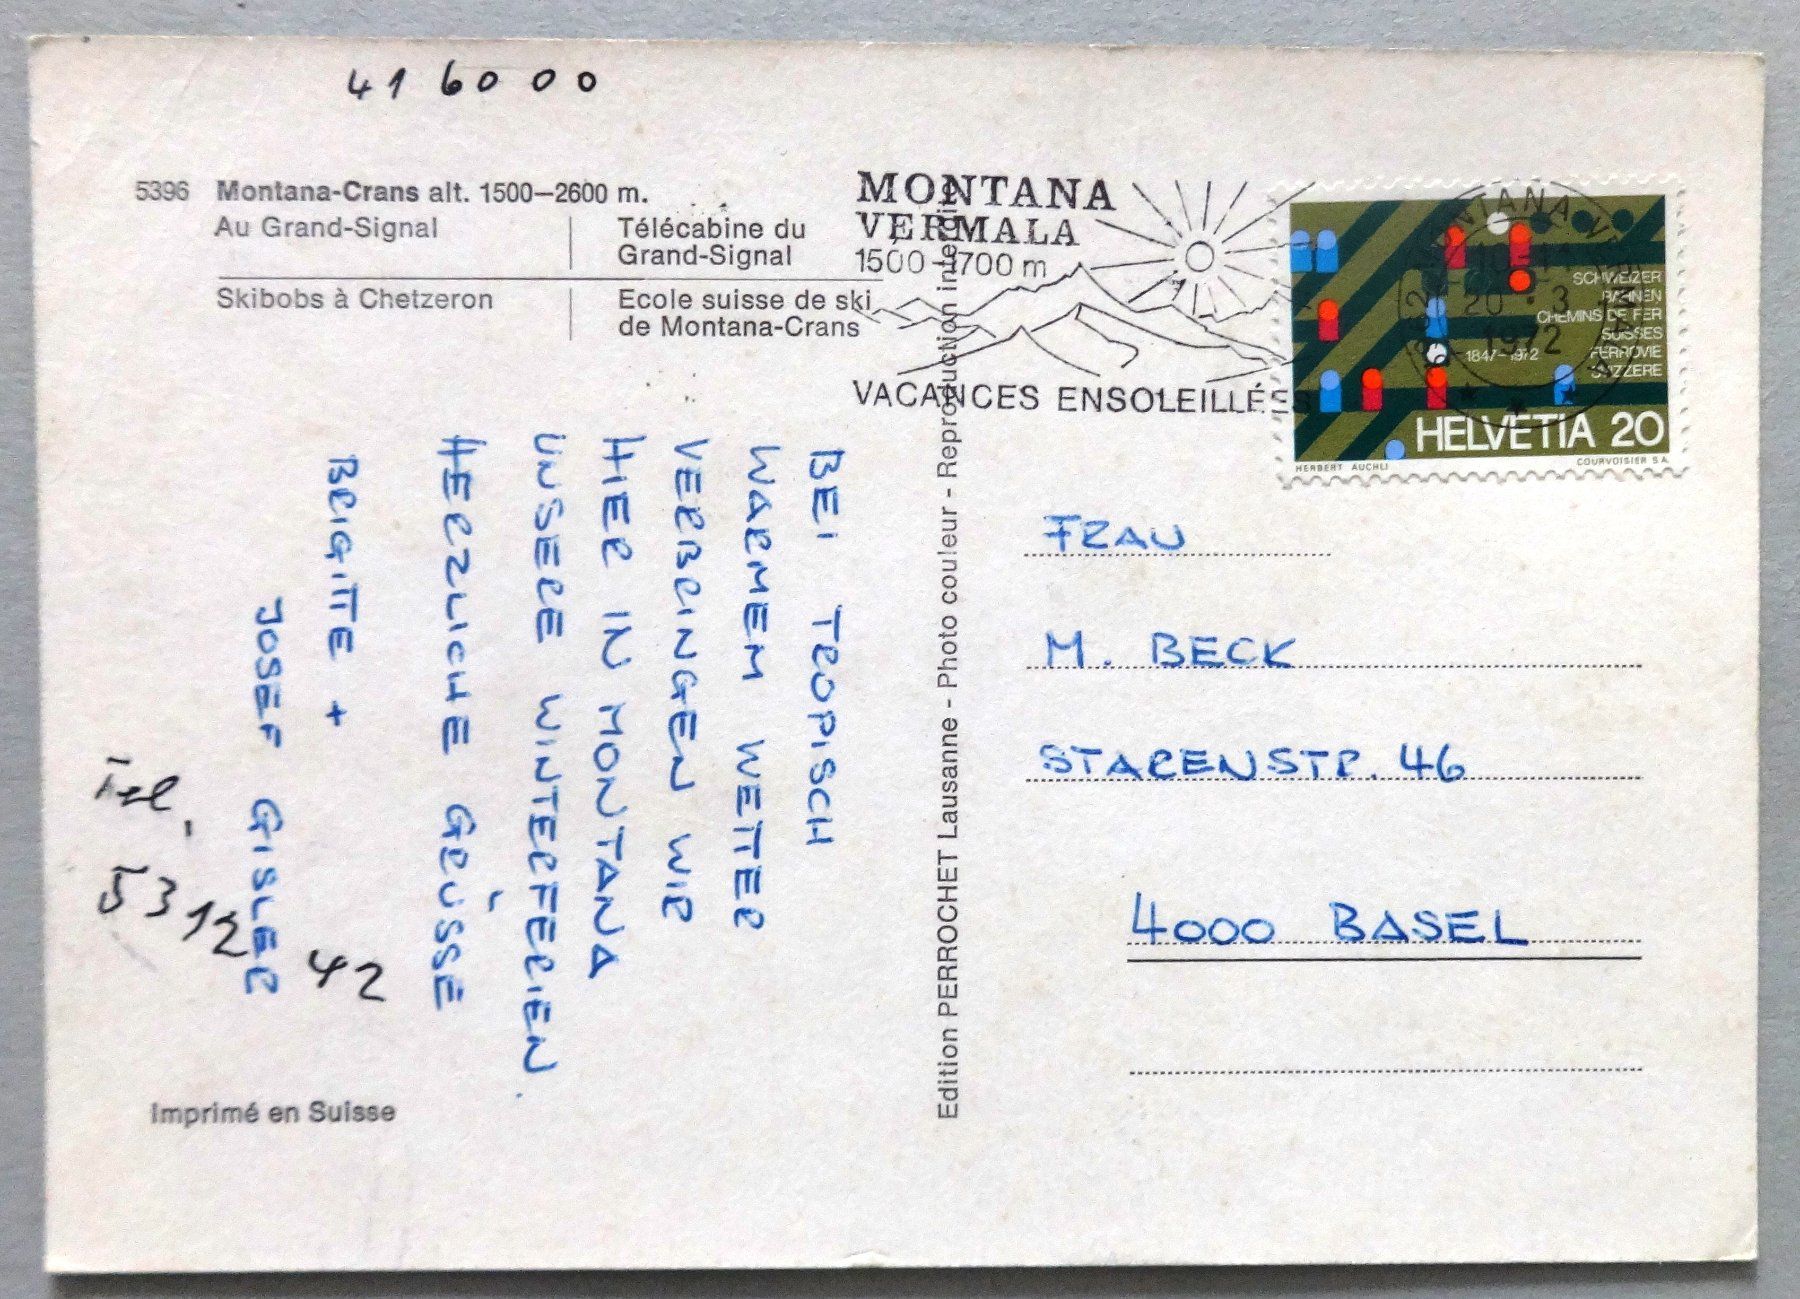 41 60 00
5396 Montana-Crans alt. 1500–2600 m.
Au Grand-Signal
Télécabine du
Grand-Signal
Skibobs à Chetzeron
Ecole suisse de ski
de Montana-Crans
MONTANA
VERMALA
1500-1700 m
VACANCES ENSOLEILLÉES
MONTANA
20.3
1972
SCHWEIZER
BAHNEN
CHEMINS DE FER
SUISSES
1847-1972 FERROVIE
SVIZZERE
HELVETIA 20
HERBERT AUCHLI
COURVOISIER S.A.
BEI TROPISCH
WARMEM WETTER
VERBRINGEN WIR
HIER IN MONTANA
UNSERE WINTERFERIEN.
HERZLICHE GRÜSSE
BRIGITTE +
JOSEF GISLER
Tel.
53 12 42
Imprimé en Suisse
Edition PERROCHET Lausanne - Photo couleur - Reproduction interdite
FRAU
M. BECK
STARENSTR. 46
4000 BASEL